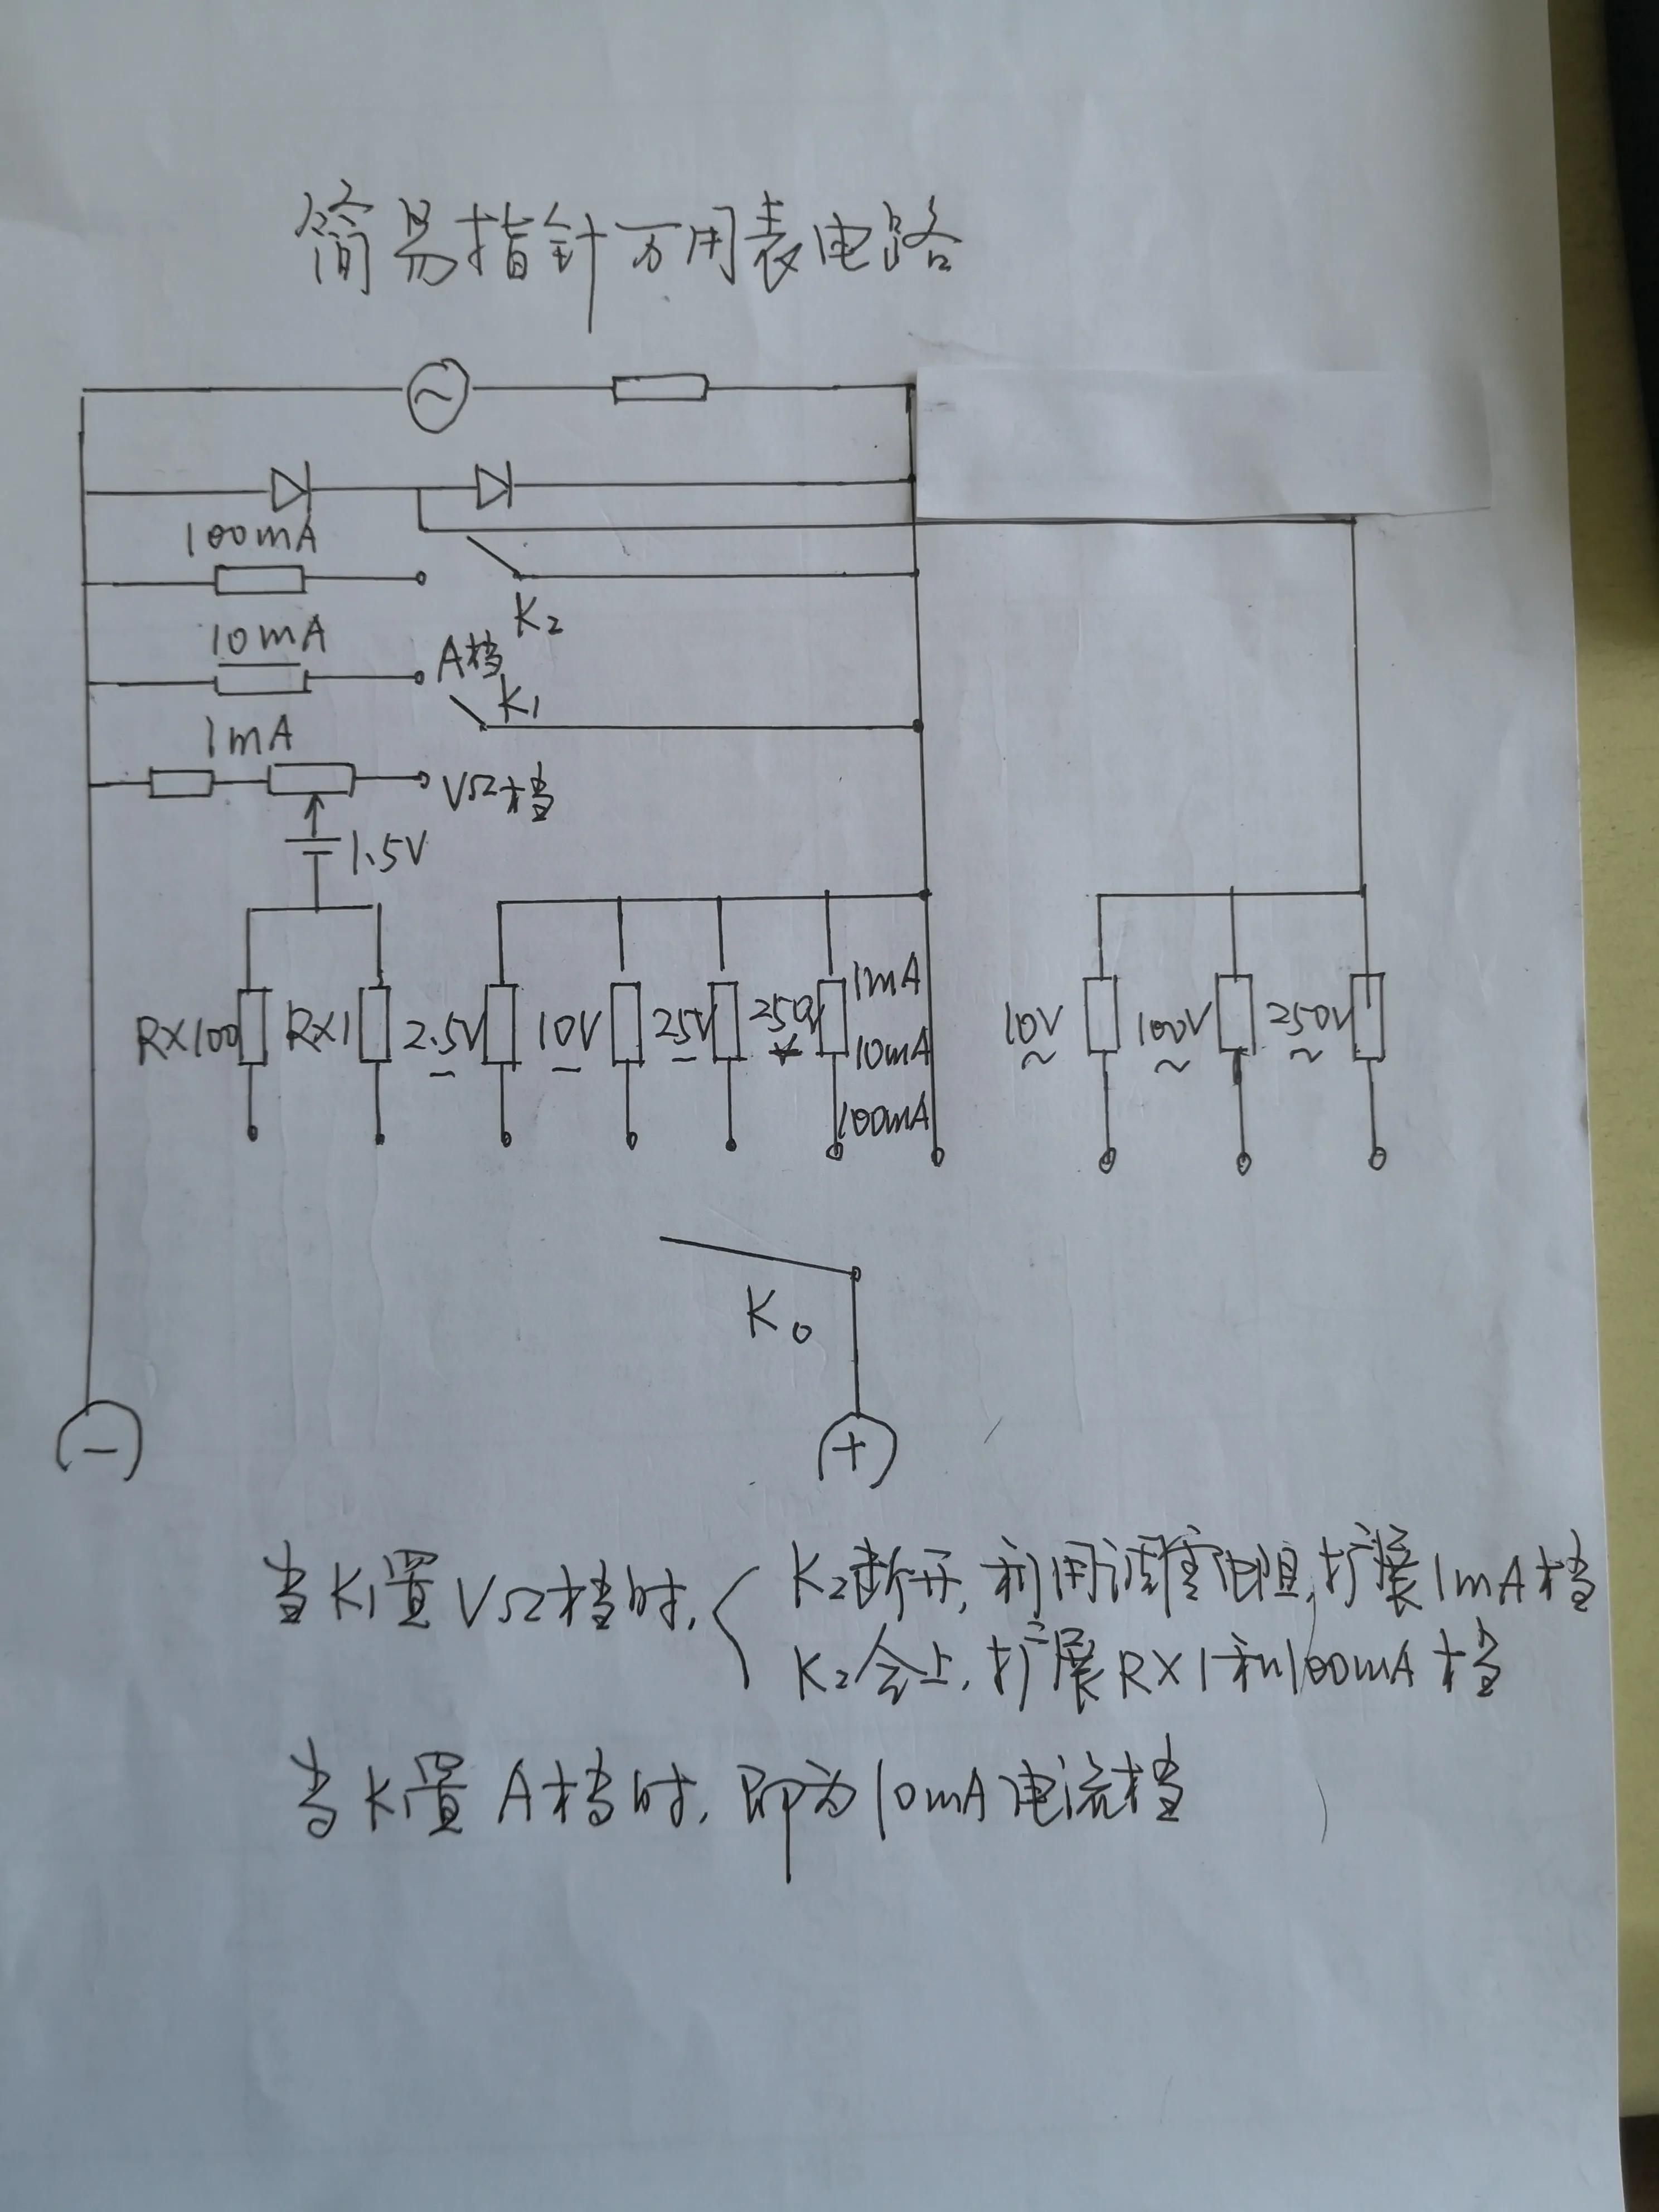 简易指针万用表电路
100mA
K₂
10mA
A档
K₁
1mA
VΩ档
1.5V
RX100 RX1 2.5V 10V 25V 250V 1mA
10mA
100mA
10V 100V 250V
~ ~ ~
K₀
− +
当K₁置VΩ档时, K₂断开, 利用调零电阻, 扩展1mA档
K₂合上, 扩展RX1和100mA档
当K₁置A档时, 即为10mA电流档